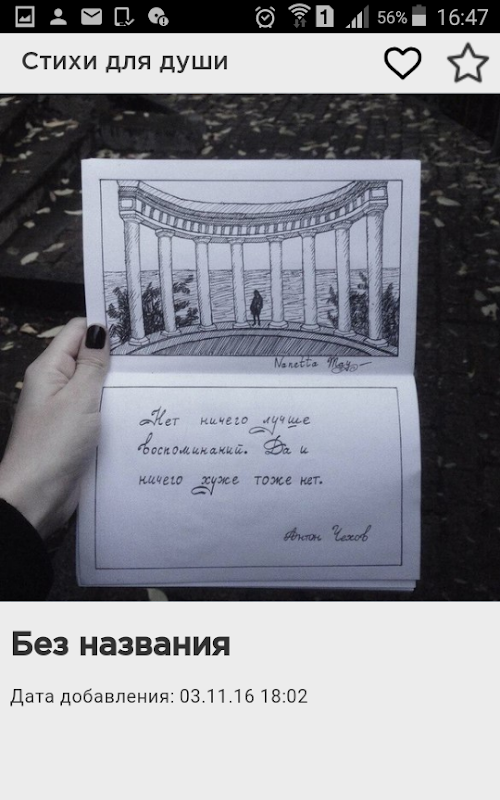 56% 16:47
Стихи для души
Nanetta
Нет ничего лучше
воспоминаний. Да и
ничего хуже тоже нет.
Антон Чехов
Без названия
Дата добавления: 03.11.16 18:02